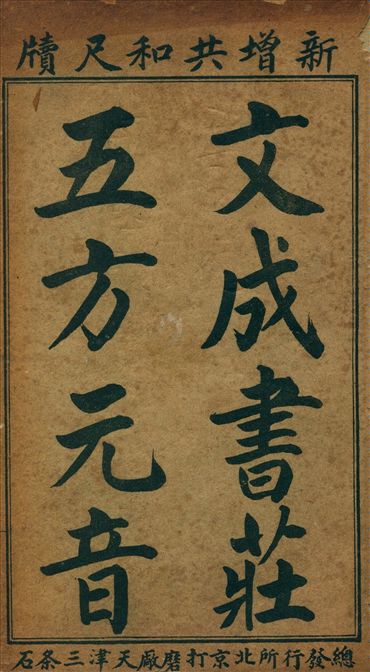 新增共和尺牘
文成書莊
五方元音
總發行所北京打磨厰天津三条石